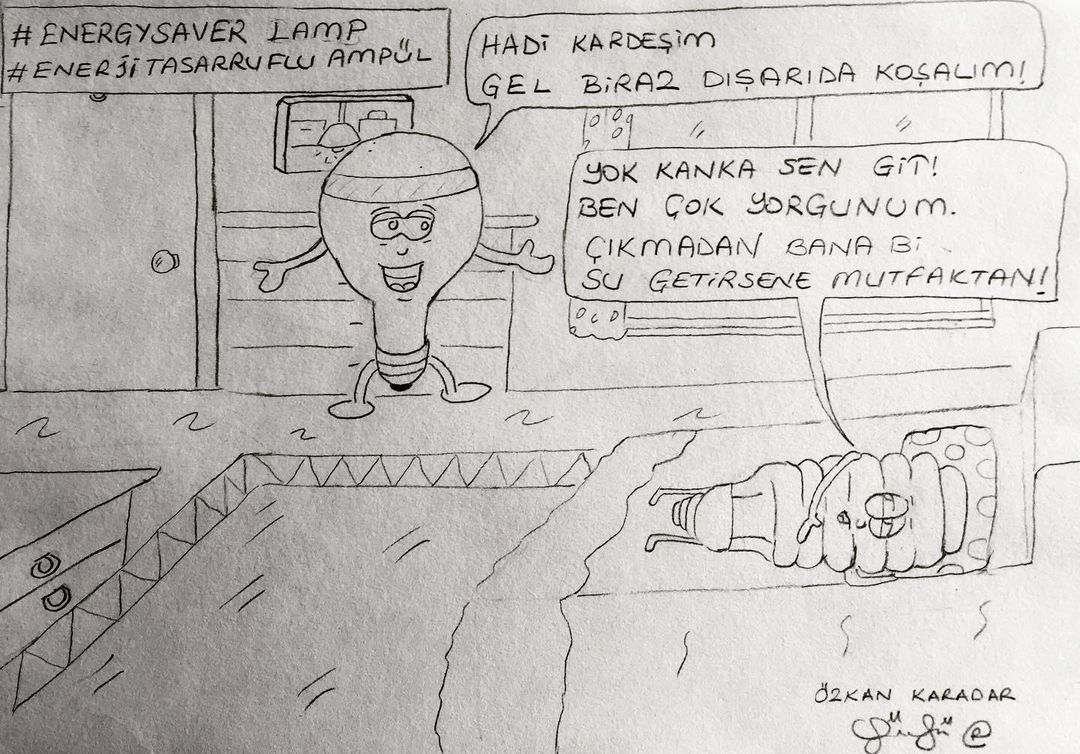 #ENERGYSAVER LAMP
#ENERJİTASARRUFLU AMPÜL
HADİ KARDEŞİM
GEL BİRAZ DIŞARIDA KOŞALIM!
YOK KANKA SEN GİT!
BEN ÇOK YORGUNUM.
ÇIKMADAN BANA Bİ
SU GETİRSENE MUTFAKTAN!
ÖZKAN KARADAR